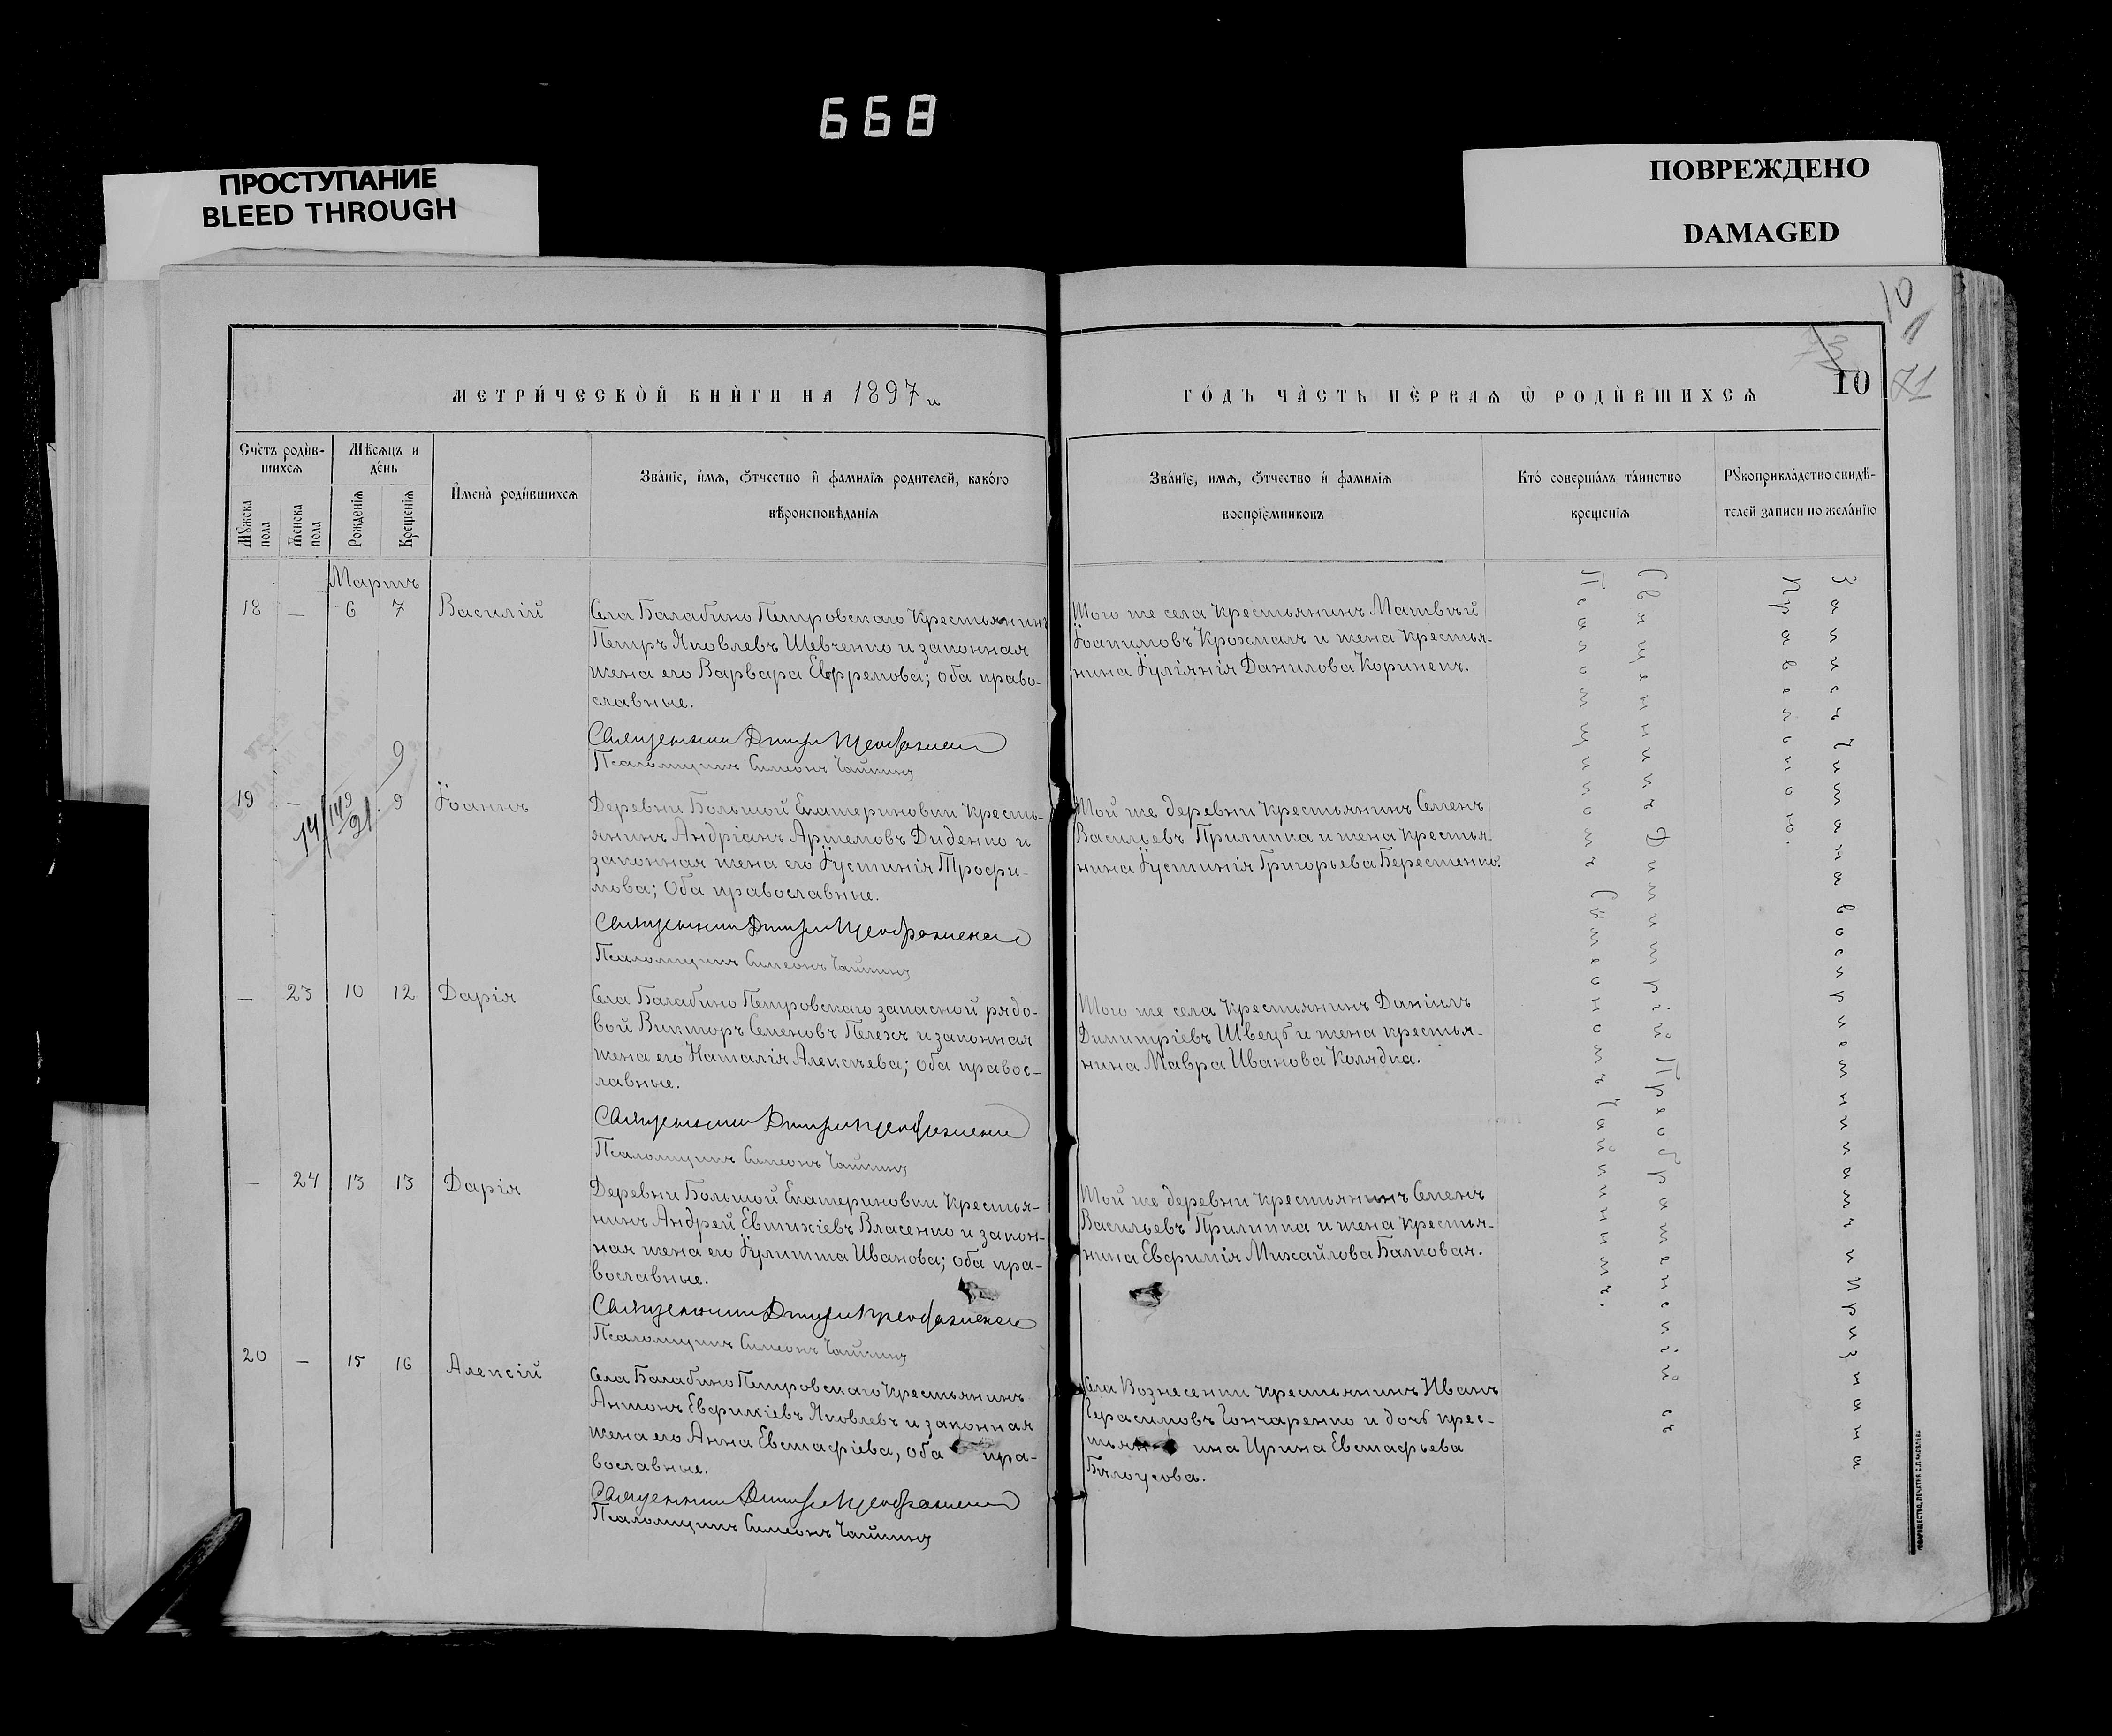 668
ПРОСТУПАНИЕ
BLEED THROUGH
ПОВРЕЖДЕНО
DAMAGED
10
1
71
10
МЕТРИ́ЧЕСКОЙ КНИ́ГИ НА 1897 й
ГО́ДЪ ЧА́СТЬ ПЕ́РВАѦ Ѿ РОДИ́ВШИХСѦ
Сче́тъ роди́в-
шихсѧ
Мѣ́сѧцъ и
де́нь
Мꙋ́жска пола
Же́нска пола
Рожденїѧ
Крещенїѧ
И҆мена̀ роди́вшихсѧ
Зва́нїе, и҆мѧ, ѻ҆тчество и҆ фамилїѧ родителей, како́гѡ
вѣроисповѣданїѧ
Зва́нїе, имѧ, ѻ҆тчество и҆ фамилїѧ
воспрїе́мниковъ
Кто́ соверша́лъ та́инство
крещенїѧ
Рꙋкоприкла́дство свидѣ́-
телей записи по жела́нїю
Мартъ
18 — 6 7 Василій
Села Балабино Петровскаго крестьянинъ
Петръ Яковлевъ Шевченко и законная
жена его Варвара Ефремова; оба право-
славные.
Священникъ Димитрій Преображенскій
Псаломщикъ Симеонъ Чайкинъ
Того же села крестьянинъ Матвѣй
Іоакимовъ Крохмаль и жена крестья-
нина Іуліянія Данилова Коринецъ.
19 — 9 9 Іоаннъ
Деревни Большой Екатериновки кресть-
янинъ Андріанъ Артемовъ Диденко и
законная жена его Іустинія Трофи-
мова; Оба православные.
Священникъ Димитрій Преображенскій
Псаломщикъ Симеонъ Чайкинъ
Той же деревни крестьянинъ Семенъ
Васильевъ Прилипка и жена крестья-
нина Іустинія Григорьева Берестенко.
— 23 10 12 Дарія
Села Балабино Петровскаго запасной рядо-
вой Викторъ Семеновъ Пелехъ и законная
жена его Наталія Алексѣева; оба правос-
лавные.
Священникъ Димитрій Преображенскій
Псаломщикъ Симеонъ Чайкинъ
Того же села крестьянинъ Даніилъ
Димитріевъ Швецъ и жена крестья-
нина Мавра Иванова Колядка.
— 24 13 13 Дарія
Деревни Большой Екатериновки крестья-
нинъ Андрей Евтихіевъ Власенко и закон-
ная жена его Іулитта Иванова; оба пра-
вославные.
Священникъ Димитрій Преображенскій
Псаломщикъ Симеонъ Чайкинъ
Той же деревни крестьянинъ Семенъ
Васильевъ Прилипка и жена крестья-
нина Евфимія Михайлова Балковая.
20 — 15 16 Алексій
Села Балабино Петровскаго крестьянинъ
Антонъ Евфиміевъ Яковлевъ и законная
жена его Анна Евстафіева, оба пра-
вославные.
Священникъ Димитрій Преображенскій
Псаломщикъ Симеонъ Чайкинъ
Села Вознесенки крестьянинъ Иванъ
Герасимовъ Гончаренко и дочь крес-
тьян ина Ирина Евстафьева
Бѣлоусова.
Священникъ Димитрій Преображенскій съ
Псаломщикомъ Симеономъ Чайкинымъ.
Запись читана воспріемникамъ и признана
правильною.